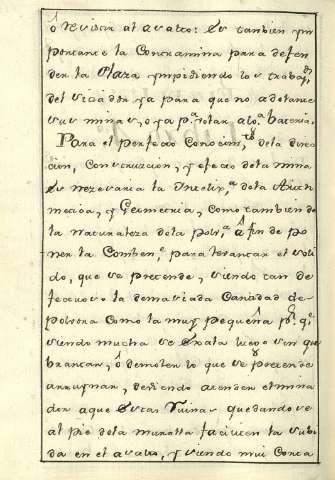 ó revistir al asalto: Es tambien ym
portante la Contramina para defen
der la Plaza ympidiendo los trabaj.s
del sitiador ya para que no adelante
sus minas, o ya p.a volar a los bateria.
Para el perfecto Conocim.to de la direc
cion, Construccion, y efecto de la mina
es nezesaria la Yntelix.a de la Arith
metica, y Geometria, como tambien de
la naturaleza de la polv.a â fin de po
ner la Comben.e para levantar el soli
do, que se pretende, siendo tan de
fectuoso la demasiada Cantidad de
polvora como la muy pequeña p.r q.e
siendo mucha se exala luego sin que
brantar, ô demoler lo que se pretende
arruynar, deviendo atender el mina
dor a que estas Ruinas quedando se
al pie de la muralla faciliten la subi
da en el asalto, y siendo mui Corta